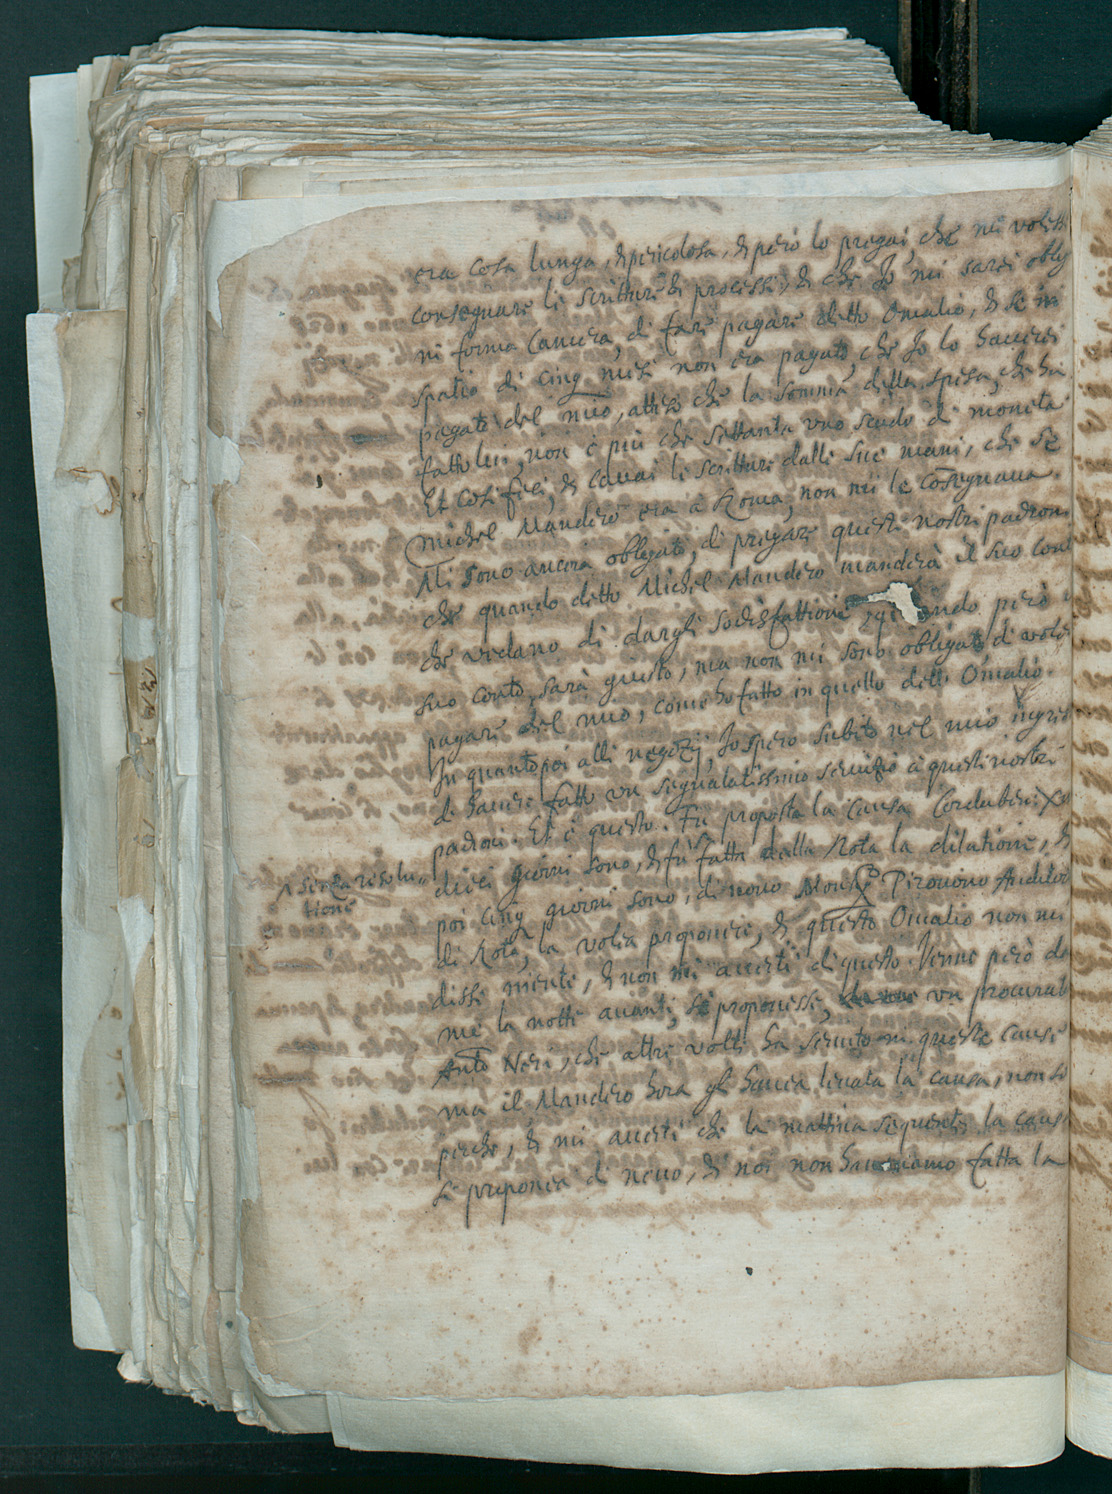 era cosa lunga, & pericolosa, & però lo pregai, che mi voless
consegnare le scritture & processi, & che Io mi sarei oblig
in forma Camera, di fare pagare detto Omalio, & se in
spatio di cinq mesi non era pagato, che Io lo haverei
pagato del mio, atteso che la somma della spesa, che ha
fatto lui, non è più che settanta uno scudo di moneta
Et cosi feci, & cavai le scritture dalle sue mani, che se
Michel Mandero era à Roma, non mi le cosegnava.
Mi sono ancora obligato, di pregare questi nostri padroni
che quando detto Michel Mandero manderà il suo cont
che vedano di dargli sodisfattione però
suo conto, sarà giusto, ma non mi sono obligato di voler
pagare del mio, come ho fatto in quello dell Omalio.
In quanto poi alli negozij, Io spero subito nel mio ingres
di havere fatto un segnalatissimo servitio à questi nostri
padroni. Et è questo. Fu proposta la causa Corduben
dieci giorni sono, & fu fatta dalla Rota la dilatione, &
^ senza risolu-
tione
poi cinq giorni sono, di novo Monsr Pirovano Auditor
di Rota, la volea proponere, & questo Omalio non mi
disse niente, & non mi avertì di questo. Venne però da
me la notte avanti, se proponesse, un procurat
Anto Neri, che altre volte ha servito in queste cause
ma il Mandero hora gl havea levata la causa, non so
perche, & mi avertì che la mattina sequente la caus
si proponea di novo, & noi non havevamo fatta la